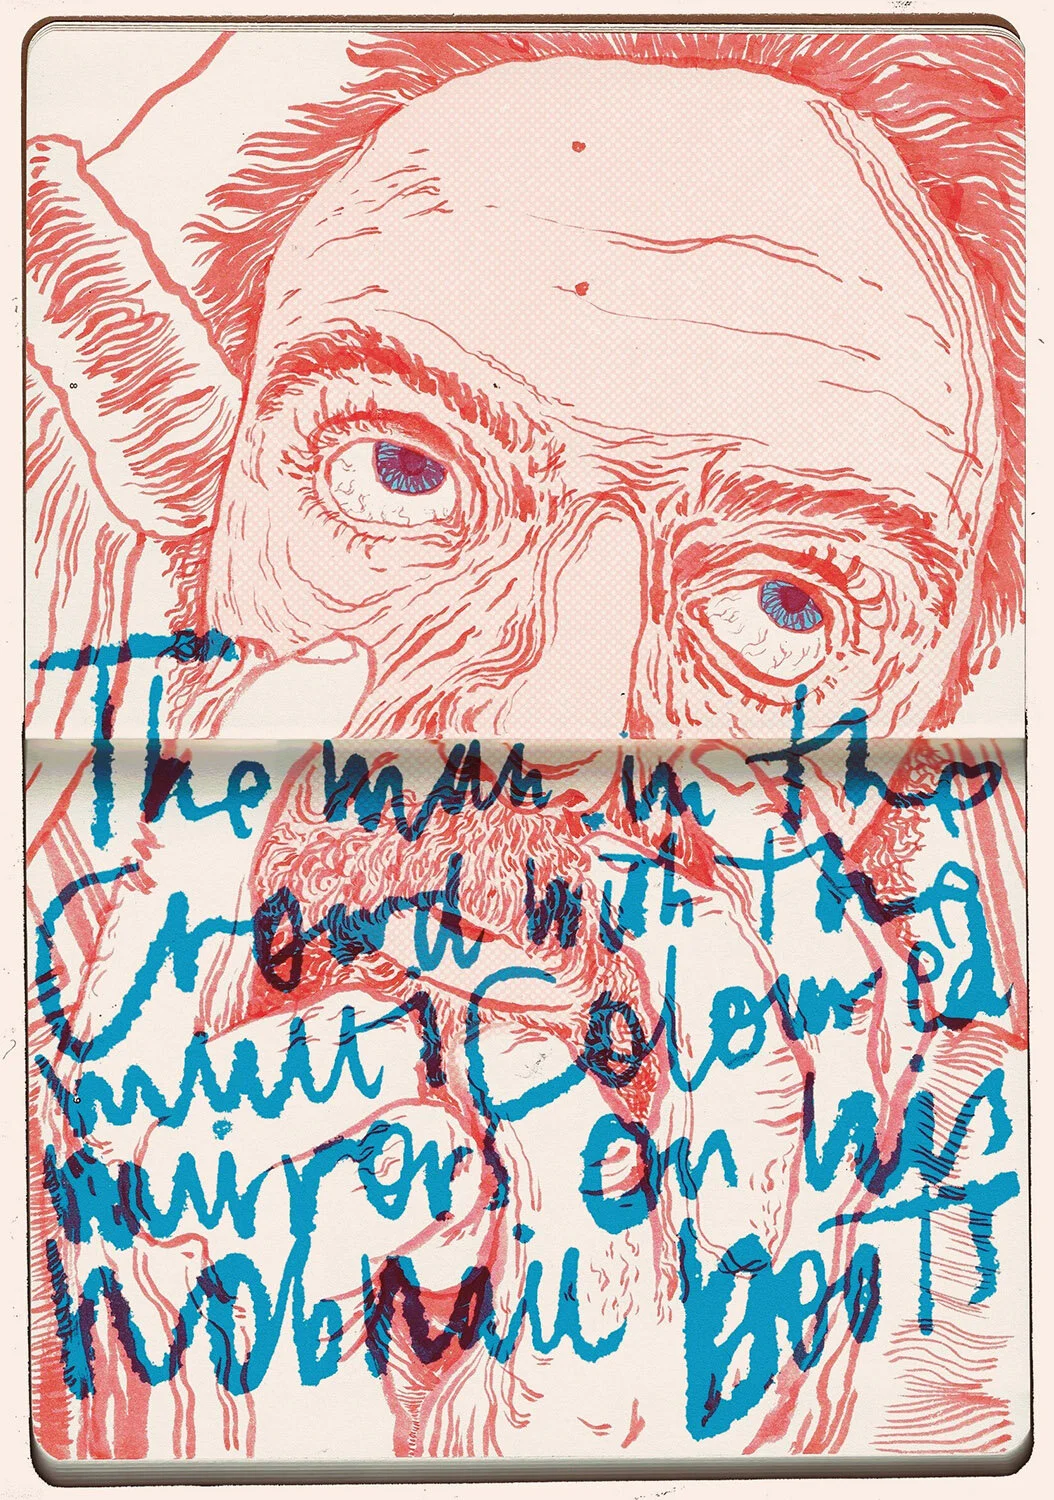 8
The man in the
Crowd with the
multi Coloured
9
mirrors on his
hobnail BooT